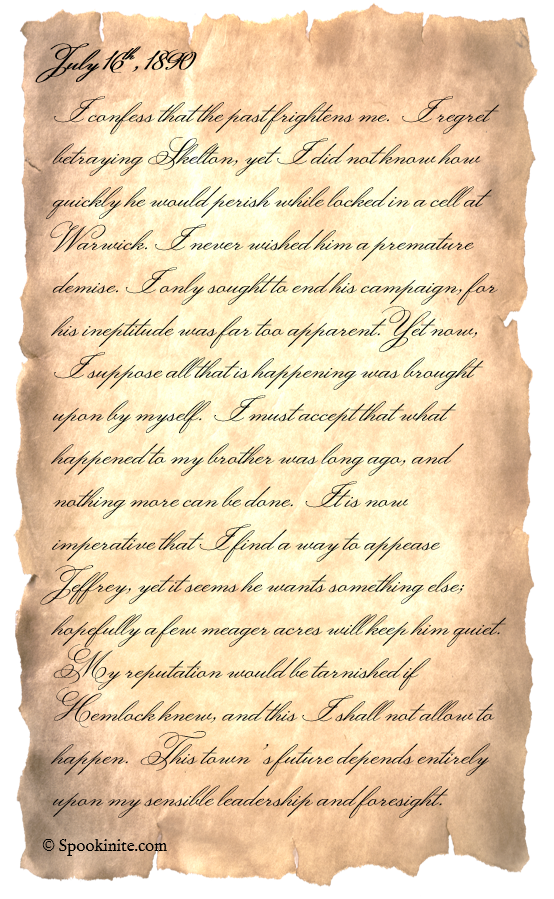 July 16th, 1890
I confess that the past frightens me. I regret
betraying Skelton, yet I did not know how
quickly he would perish while locked in a cell at
Warwick. I never wished him a premature
demise. I only sought to end his campaign, for
his ineptitude was far too apparent. Yet now,
I suppose all that is happening was brought
upon by myself. I must accept that what
happened to my brother was long ago, and
nothing more can be done. It is now
imperative that I find a way to appease
Jeffrey, yet it seems he wants something else;
hopefully a few meager acres will keep him quiet.
My reputation would be tarnished if
Hemlock knew, and this I shall not allow to
happen. This town 's future depends entirely
upon my sensible leadership and foresight.
© Spookinite.com